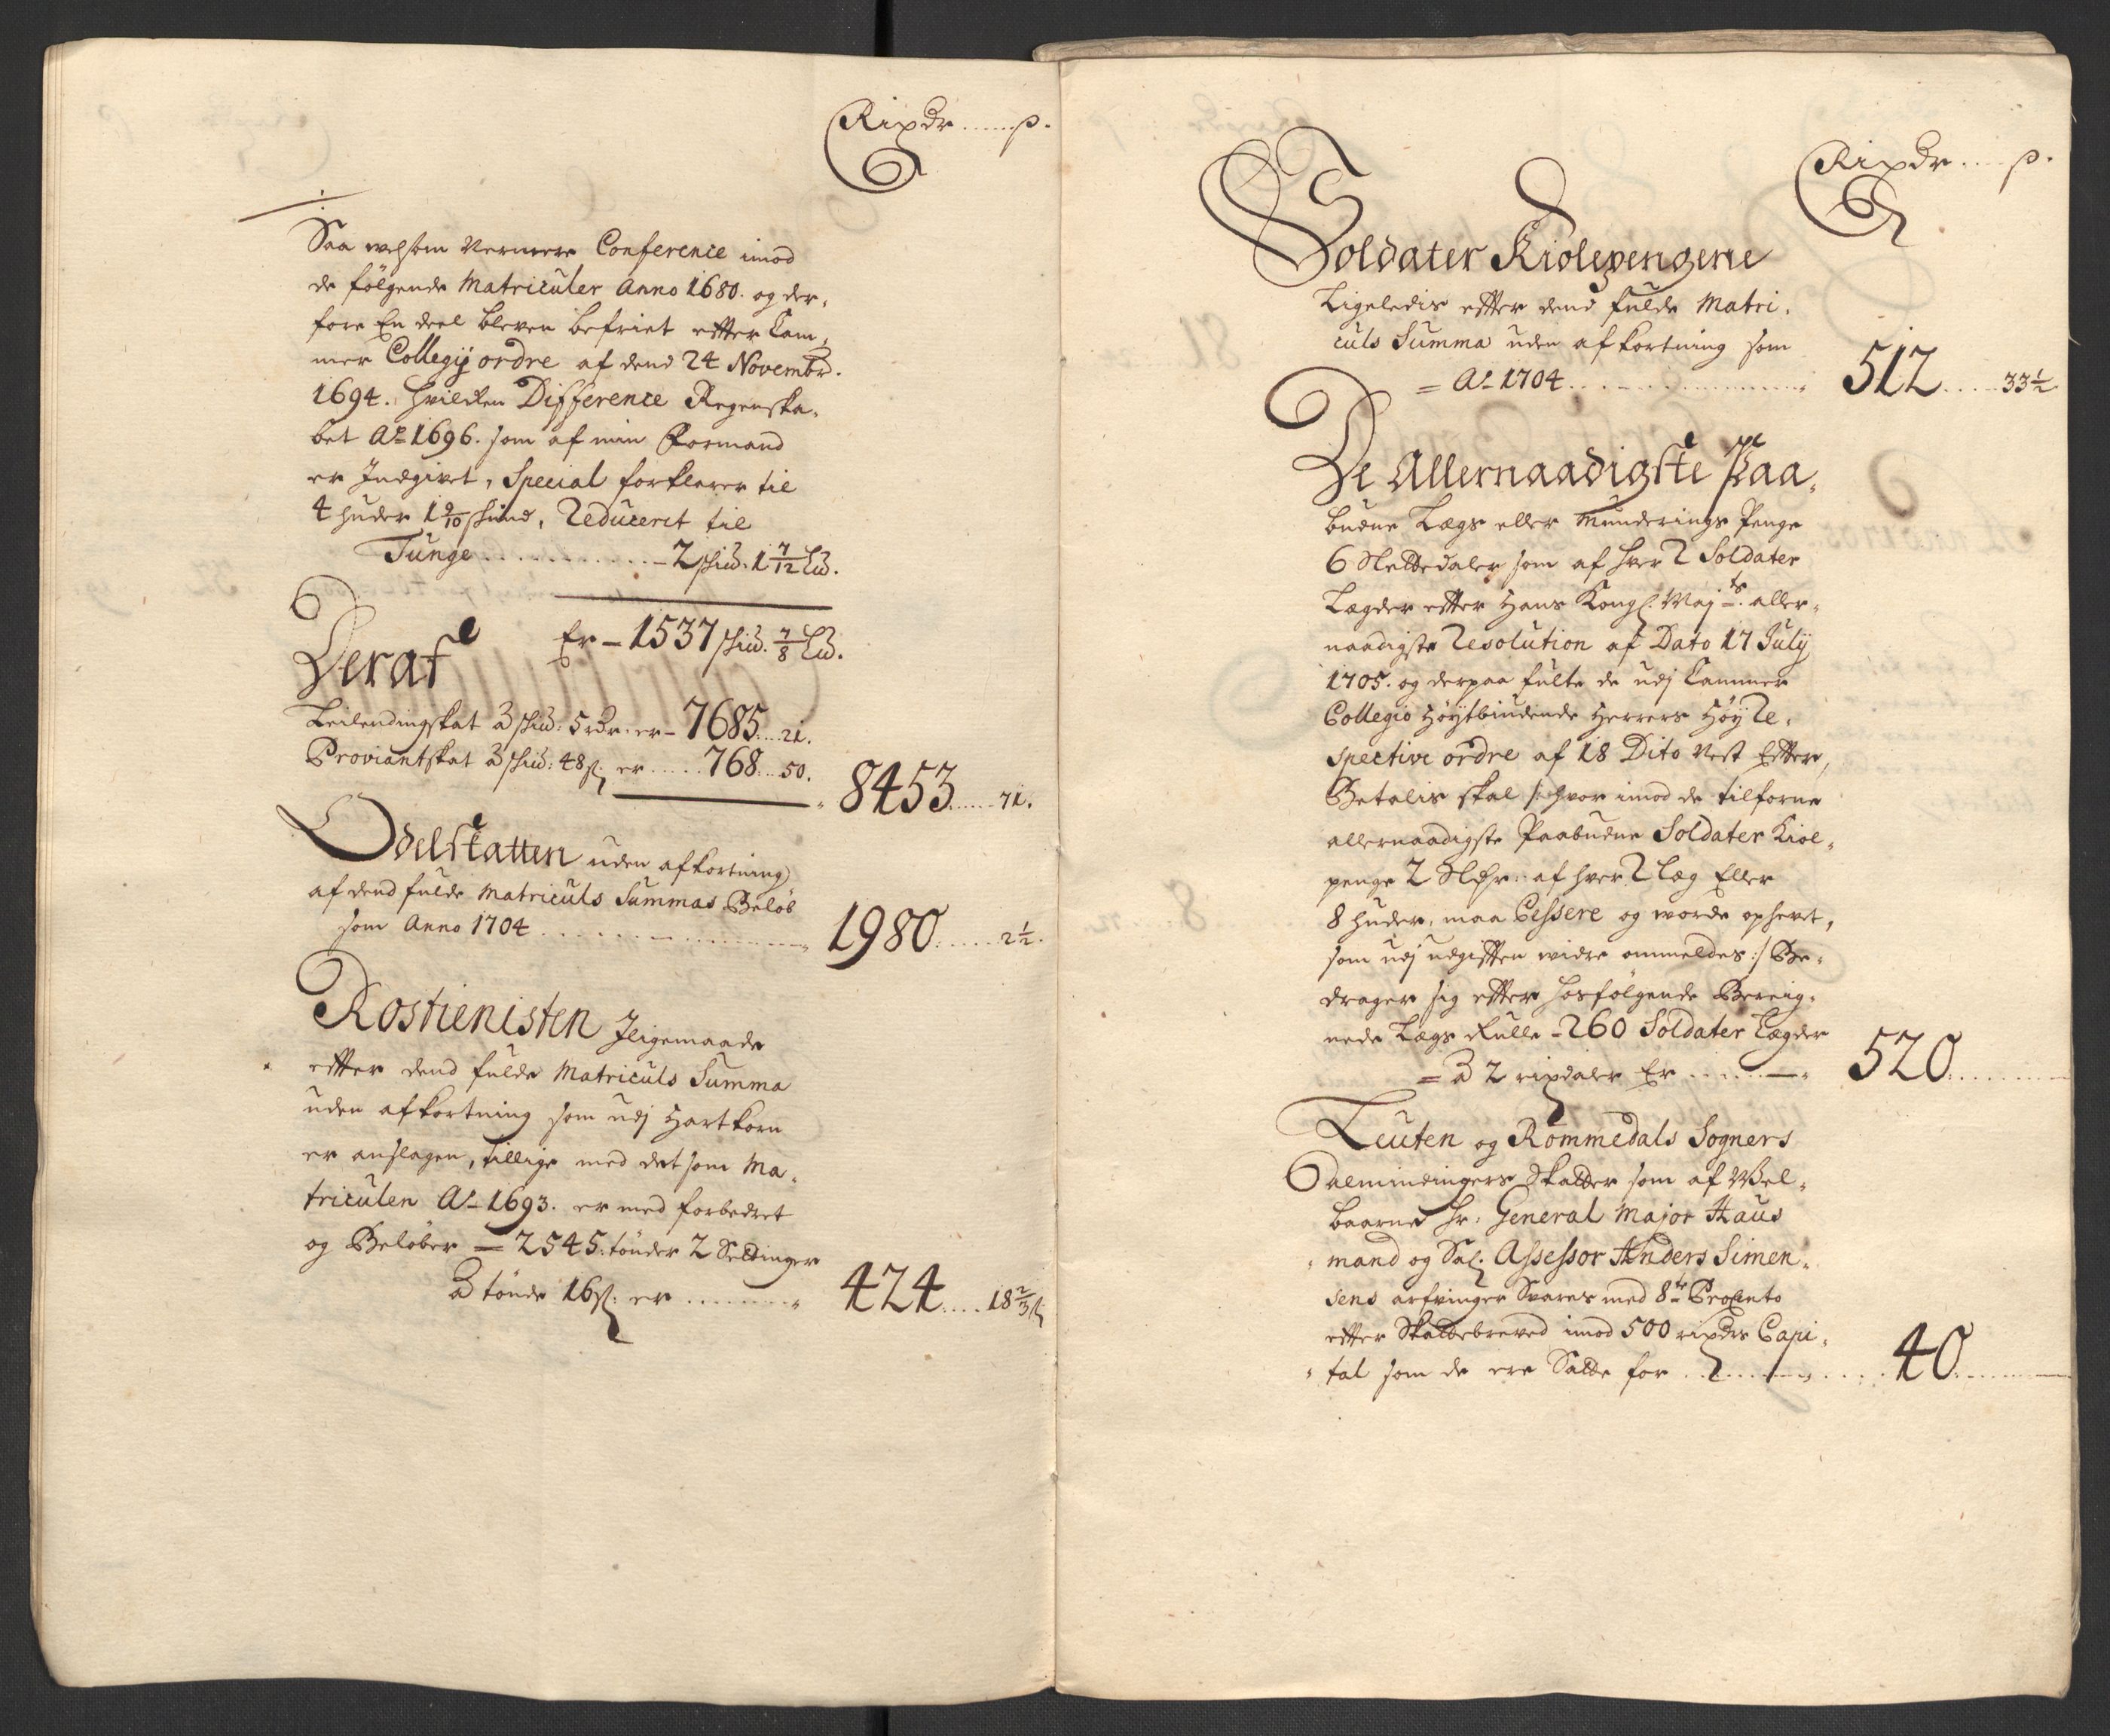 Rixdr ..... ß.
Saa velsom Nermere Conference imod
de følgende Matriculer Anno 1680. og der,
fore En deel bleven befriet efter Cam,
mer Collegij ordre af dend 24 Novembr.
1694. hvilcken Difference Regenska,
bet Ao 1696. som af min Formand
er Indgivet, Special forklarer til
4 huder 1 9/10 skind, Reduceret til
Tunge ........... 2 skid. 1 7/12 Lld.
Er - 1537 skid. 7/8 Lld.
Deraf
Leilendingskat à skid: 5 rdr. er - 7685 ... 21.
Proviantskat à skid: 48 ß er ..... 768 ... 50.
8453 ..... 71.
Odelskatten uden afkortning
af dend fulde Matriculs Summas Beløb
som Anno 1704 ........... 1980 ..... 2 1/2.
Rostienisten Jligemaade
efter dend fulde Matriculs Summa
uden afkortning som udj Hartkorn
er anslagen, tillige med det som Ma,
triculen Ao 1693. er med forbedret
og Beløber = 2545. tønder 2 Settinger
à tønde 16 ß: er ........ 424 .... 18 2/3 ß
Rixdr .... ß.
Soldater Kiolepengene
Ligeledis efter dend fulde Matri,
culs Summa uden afkortning som
= Ao 1704 ........... 512 .... 33 1/2
De Allernaadigste Paa,
budne Lægs eller Munderings Penge
6 Slettedaler som af hver 2 Soldater
Lægder efter Hans Kongl: Majts. aller,
naadigste Resolution af Dato 17 July
1705. og derpaa fulte de udj Cammer
Collegio Høytbiudende Herrers Høy Re,
spective ordre af 18 Dito Nest Efter,
Betalis skal /: hvor imod de tilforne
allernaadigste Paabudne Soldater Kiol,
penge 2 Sldr: af hver 2 læg Eller
8 huder, maa Cessere og vorde ophevt,
som udj udgiften widre ommeldes :/ Be,
drager sig efter hosfølgende Bereig,
nede Lægs Rulle - 260 Soldater Lægder
= à 2 rixdaler Er ........ 520 ........
Leuten og Rommedals Sogners
Almindingers Skatter som af Wel,
baarne Hr: General Major Haus
mand og Sal: Assessor Anders Simen,
sens arfvinger Svares med 8te ProCento
efter Skattebreved imod 500 rixdrs Capi,
tal som de ere Satte for ........ 40 ........